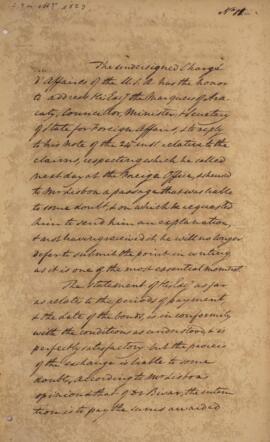 Nº 11.
The Undersigned Chargé
d'Affaires of the U.S. A. has the honor
to address His Excy. the Marquess of Ara-
caty, Councillor, Minister, & Secretary
of State for Foreign Affairs, & to reply
to his Note of the 24th inst. relative to the
claims, respecting which he called
next day at the Foreign Office, & shewed
to Mr Lisboa a passage that was liable
to some doubt, & on which he requested
him to send him an explanation,
& not having received it he will no longer
defer to submit the point in writing
as it is one of the most essential moment.
The Statement of His Excy as far
as relate to the periods of payment
& the date of the bonds, is in conformity
with the conditions as understood, & is
perfectly satisfactory but the process
of the exchange is liable to some
doubt, According to Mr Lisboa
opinion & that of Dr Bivar, the inten
tion is to pay the sums awarded